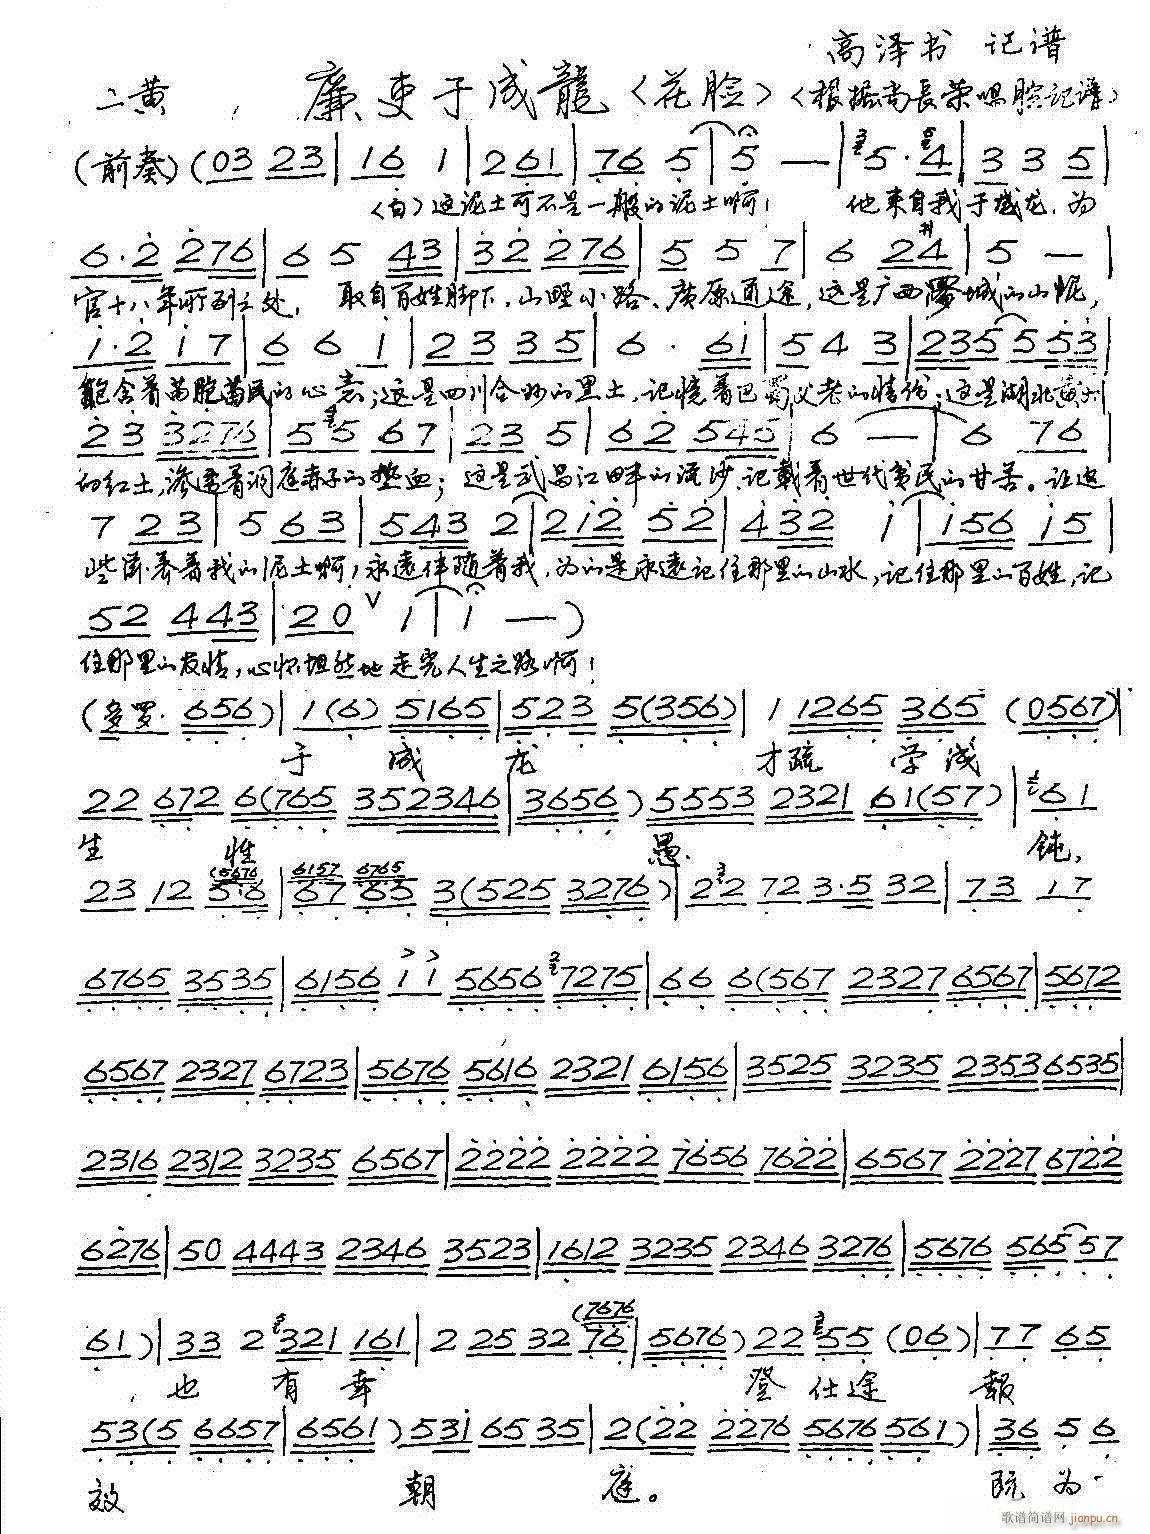 高泽书 记谱
二黄 廉吏于成龍〈花脸〉〈根据尚長荣唱腔记谱〉
(前奏)(03 23|16 1|261|76 5|5 —|5·4|3 3 5
〈白〉这泥土可不是一般的泥土啊! 他来自我于成龙.为
6·2 276|6 5 43|32 276|5 5 7|6 24|5 —|
官十八年所到之处, 取自百姓脚下,山野小路、广原通途,这是广西罗城的山泥,
1·2 1 7|6 6 1|2 3 3 5|6 · 61|5 4 3|235 5 53|
饱含着苗胞苗民的心志;这是四川合州的黑土,记憶着巴蜀父老的情份;这是湖北黄州
23 3276|5 5 67|23 5|62 545|6 —|6 76
的红土,渗透着洞庭赤子的热血;这是武昌江畔的流沙、记載着世代贫民的甘苦。让这
7 23|5 63|543 2|212 52|432 1|156 15|
些滋养着我的泥土啊!永遠伴随着我.为的是永遠记住那里的山水,记住那里的百姓,记
52 443|20 V 1|1 —)
住那里的友情,心怀坦然地走完人生之路啊!
(多罗· 656)|1(6) 5165|523 5(356)|1 1265 365 (0567)|
于 成 龙 才疏 学浅
22 672 6(765 352346|3656) 5553 2321 61(57)|61
生 性 愚. 鈍,
(5676 6157 6765
23 12 5·6|67 65 3(525 3276)|22 72 3·5 32|73 17
6765 3535|6156 11 5656 7275|66 6(567 2327 6567|5672
6567 2327 6723|5676 5616 2321 6156|3525 3235 2353 6535|
2316 2312 3235 6567|2222 2222 7656 7622|6567 2227 6722
6276|50 4443 2346 3523|1612 3235 2346 3276|5676 565 57
(7676
61)|33 2 321 161|2 25 32 76|5676) 22 55 (06)|77 65
也 有 幸 登 仕 途 報
53(5 6657|6561) 531 65 35|2(22 2276 5676 561)|36 5 6
效 朝 庭。 既 为
歌谱简谱网
jianpu.cn